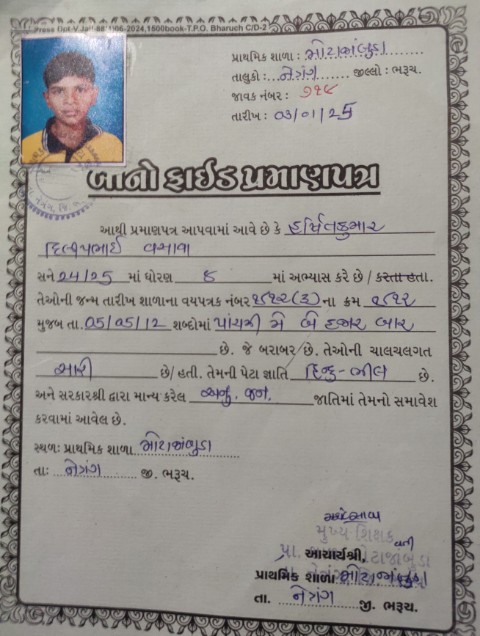 Press Dpt-V.Jali-88/1/06-2024,1500book-T.P.O. Bharuch C/D-2
પ્રાથમિક શાળા : મોટાજાંબુડા
તાલુકો : નેત્રંગ જીલ્લો : ભરૂચ.
જાવક નંબર : ૭૧૪
તારીખ : 03/01/25
બોનો ફાઈડ પ્રમાણપત્ર
આથી પ્રમાણપત્ર આપવામાં આવે છે કે હર્ષિતકુમાર
દિલીપભાઈ વસાવા
સને 24/25 માં ધોરણ ૬ માં અભ્યાસ કરે છે / કરતા હતા.
તેઓની જન્મ તારીખ શાળાના વયપત્રક નંબર ના ક્રમ
મુજબ તા. 05/05/12 શબ્દોમાં પાંચમી મે બે હજાર બાર
છે. જે બરાબર છે. તેઓની ચાલચલગત
સારી છે/ હતી. તેમની પેટા જ્ઞાતિ હિન્દુ-ભીલ છે.
અને સરકારશ્રી દ્વારા માન્ય કરેલ અનુ. જન. જાતિમાં તેમનો સમાવેશ
કરવામાં આવેલ છે.
સ્થળઃ પ્રાથમિક શાળા મોટાજાંબુડા
તાઃ નેત્રંગ જી. ભરૂચ.
મુખ્ય શિક્ષક
પ્રા. આચાર્યશ્રી, મોટાજાંબુડા
પ્રાથમિક શાળા મોટાજાંબુડા
તા. નેત્રંગ જી. ભરૂચ.